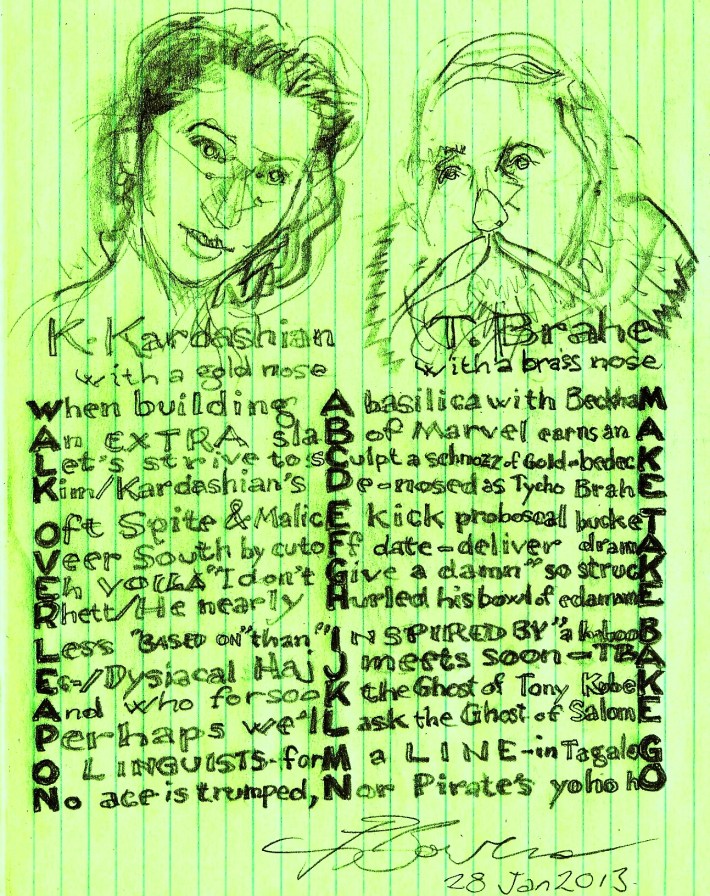 K. Kardashian
with a gold nose
T. Brahe
with a brass nose
When building A basilica with BeckhaM
An EXTRA slaB of Marvel earns an A
Let's strive to sCulpt a schnozz of Gold-bedecK
Kim/Kardashian's De-nosed as Tycho BrahE
Oft Spite & MalicE kick proboscal buckeT
Veer South by cutofF date-deliver dramA
Eh VOILA "I don't Give a damn" so strucK
Rhett/He nearly Hurled his bowl of edamamE
Less "BASED ON" than "INSPIRED BY" a kabooB
Ec-/Dysiacal HajJ meets soon-TBA
And who forsooK the Ghost of Tony KubeK
Perhaps we'lL ask the Ghost of SalomE
O LINGUISTS-forM a LINE-in TagaloG
No ace is trumped, Nor Pirate's yoho hO
28 Jan 2013.